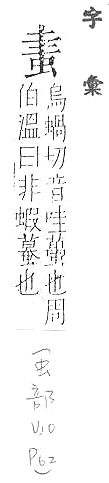 字彙
烏蝸切音哇蠆也周
伯溫曰非蝦蟇也
(虫部 V.10 P62)